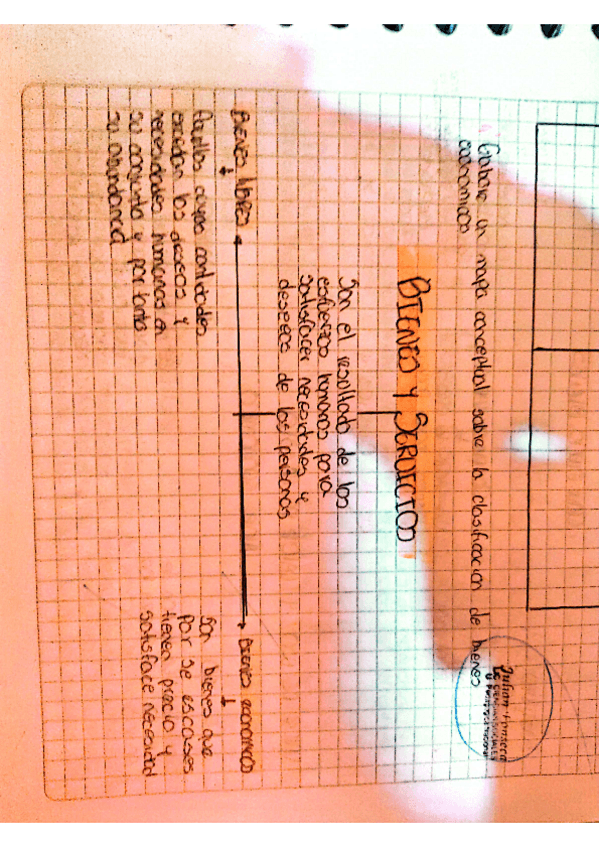 Elabore un mapa conceptual sobre la clasificación de bienes
económicos
BIENES Y SERVICIOS
Son el resultado de los
esfuerzos humanos para
satisfacer necesidades y
deseos de las personas
Bienes libres
Aquellos cuyas cantidades
exceden los deseos y
necesidades humanas en
su conjunto y por tanto
su abundancia
Bienes económicos
Son bienes que
por se escases
tienen precio y
satisface necesidad
Julian Fonseca
Lic CIENCIAS SOCIALES